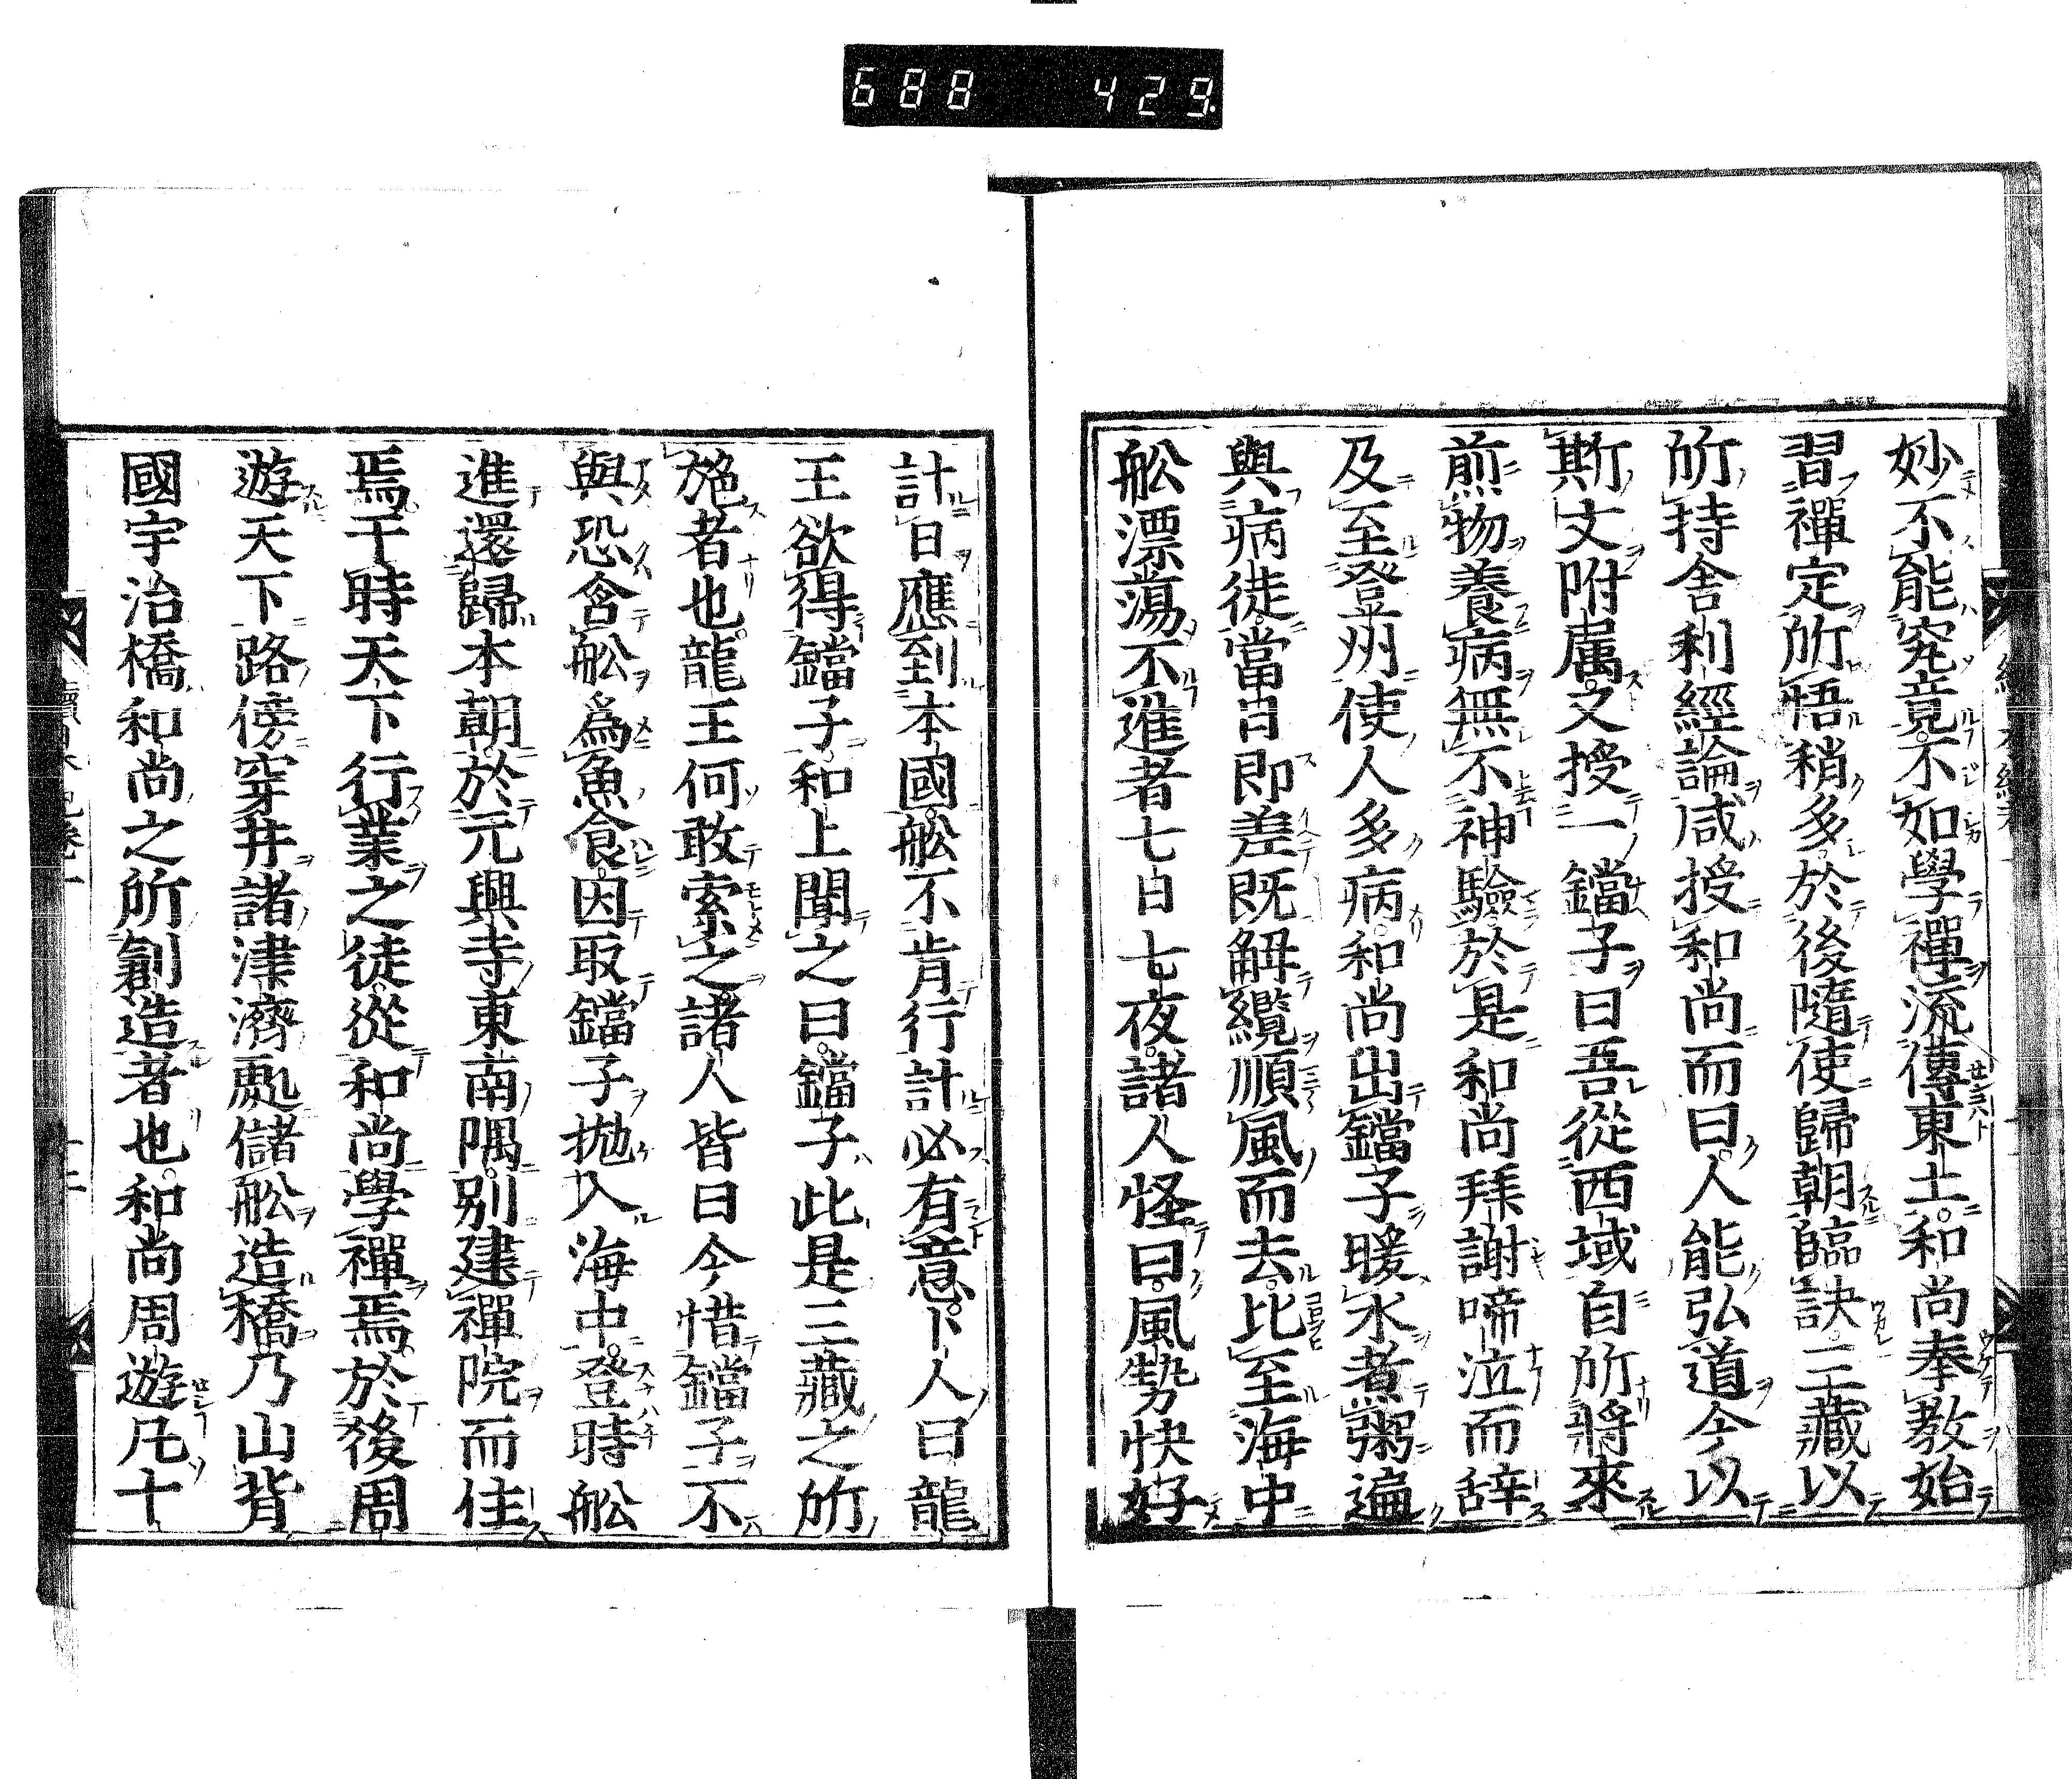 688 429
妙不能究竟不如學禪流傳東土和尚奉教始
習禪定所悟稍多於後隨使歸朝臨訣三藏以
所持舍利經論咸授和尚而曰人能弘道今以
斯文附属又授一鐺子曰吾從西域自所將來
煎物養病無不神驗於是和尚拜謝啼泣而辞
及至登州使人多病和尚出鐺子暖水煮粥遍
與病徒當日即差既解纜順風而去比至海中
舩漂蕩不進者七日七夜諸人怪曰風勢快好
計日應到本國舩不肯行計必有意卜人曰龍
王欲得鐺子和上聞之曰鐺子此是三藏之所
施者也龍王何敢索之諸人皆曰今惜鐺子不
與恐合舩為魚食因取鐺子拋入海中登時舩
進還歸本朝於元興寺東南隅別建禪院而住
焉于時天下行業之徒從和尚學禪焉於後周
遊天下路傍穿井諸津濟處儲舩造橋乃山背
國宇治橋和尚之所創造者也和尚周遊凡十